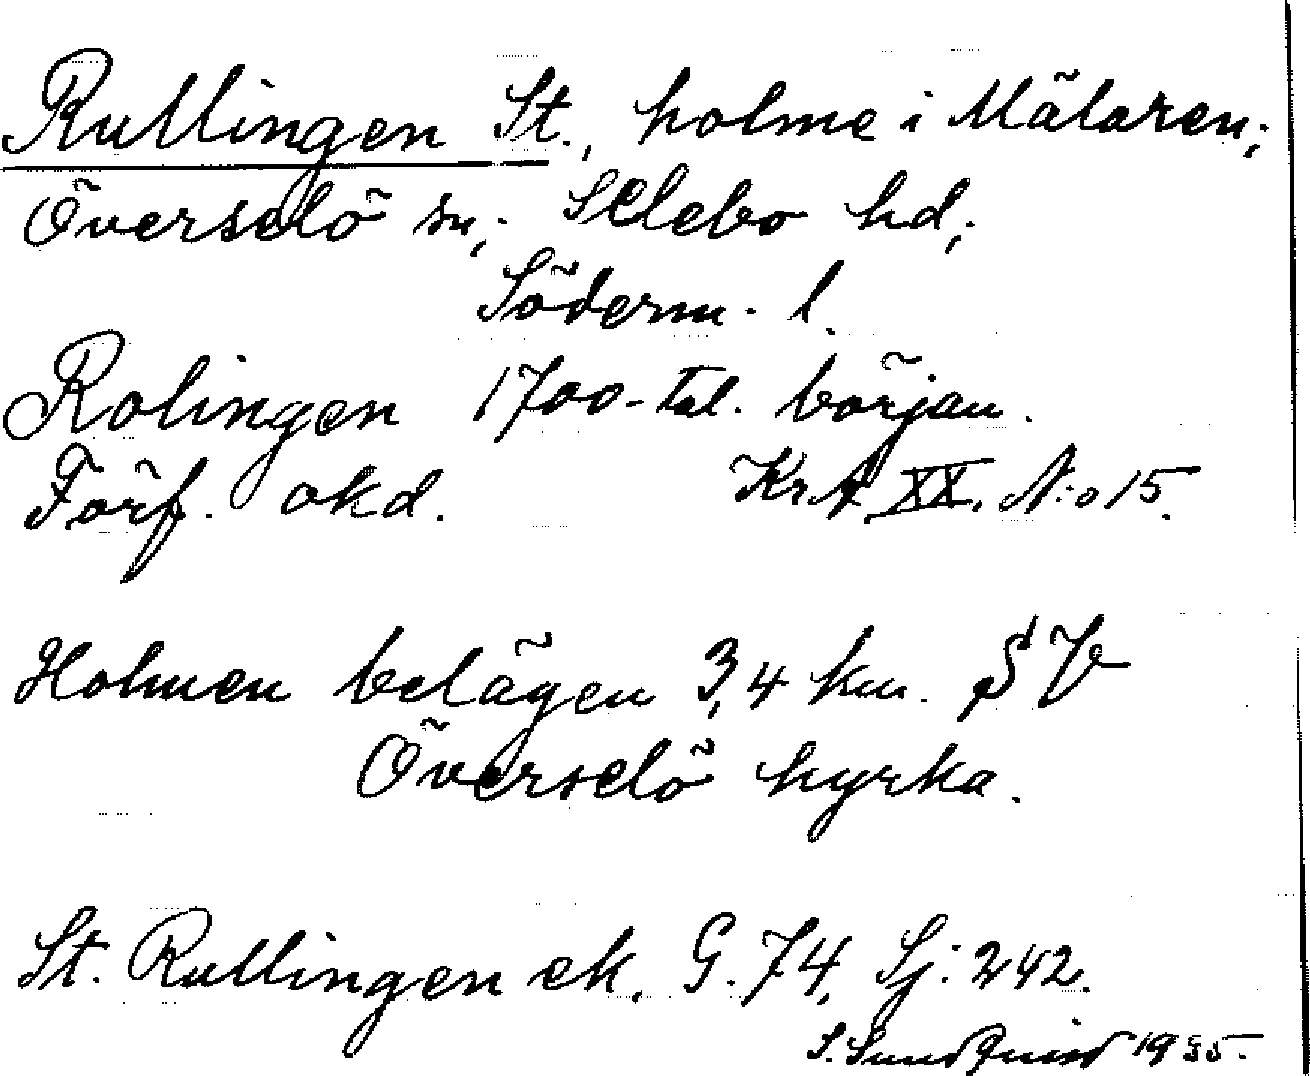 Rullingen St., holme i Mälaren;
Överselö sn; Selebo hd;
Söderm. l.
Rolingen 1700-tal. början.
Förf. okd. Kr.A. XX. N:o 15.
Holmen belägen 3,4 km. SV
Överselö kyrka.
St. Rullingen ek. G. 74, Sj: 242.
S. Sundquist 1935.